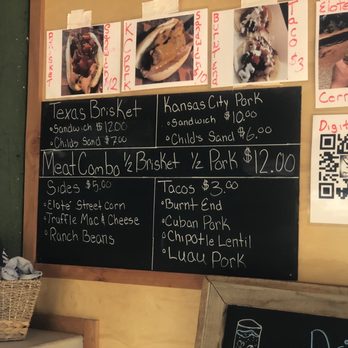 Texas Brisket
• Sandwich $12.00
• Child's Sand $7.00
Kansas City Pork
• Sandwich $10.00
• Child's Sand $6.00
Meat Combo ½ Brisket ½ Pork $12.00
Sides $5.00
• Elote Street Corn
• Truffle Mac & Cheese
• Ranch Beans
Tacos $3.00
• Burnt End
• Cuban Pork
• Chipotle Lentil
• Luau Pork